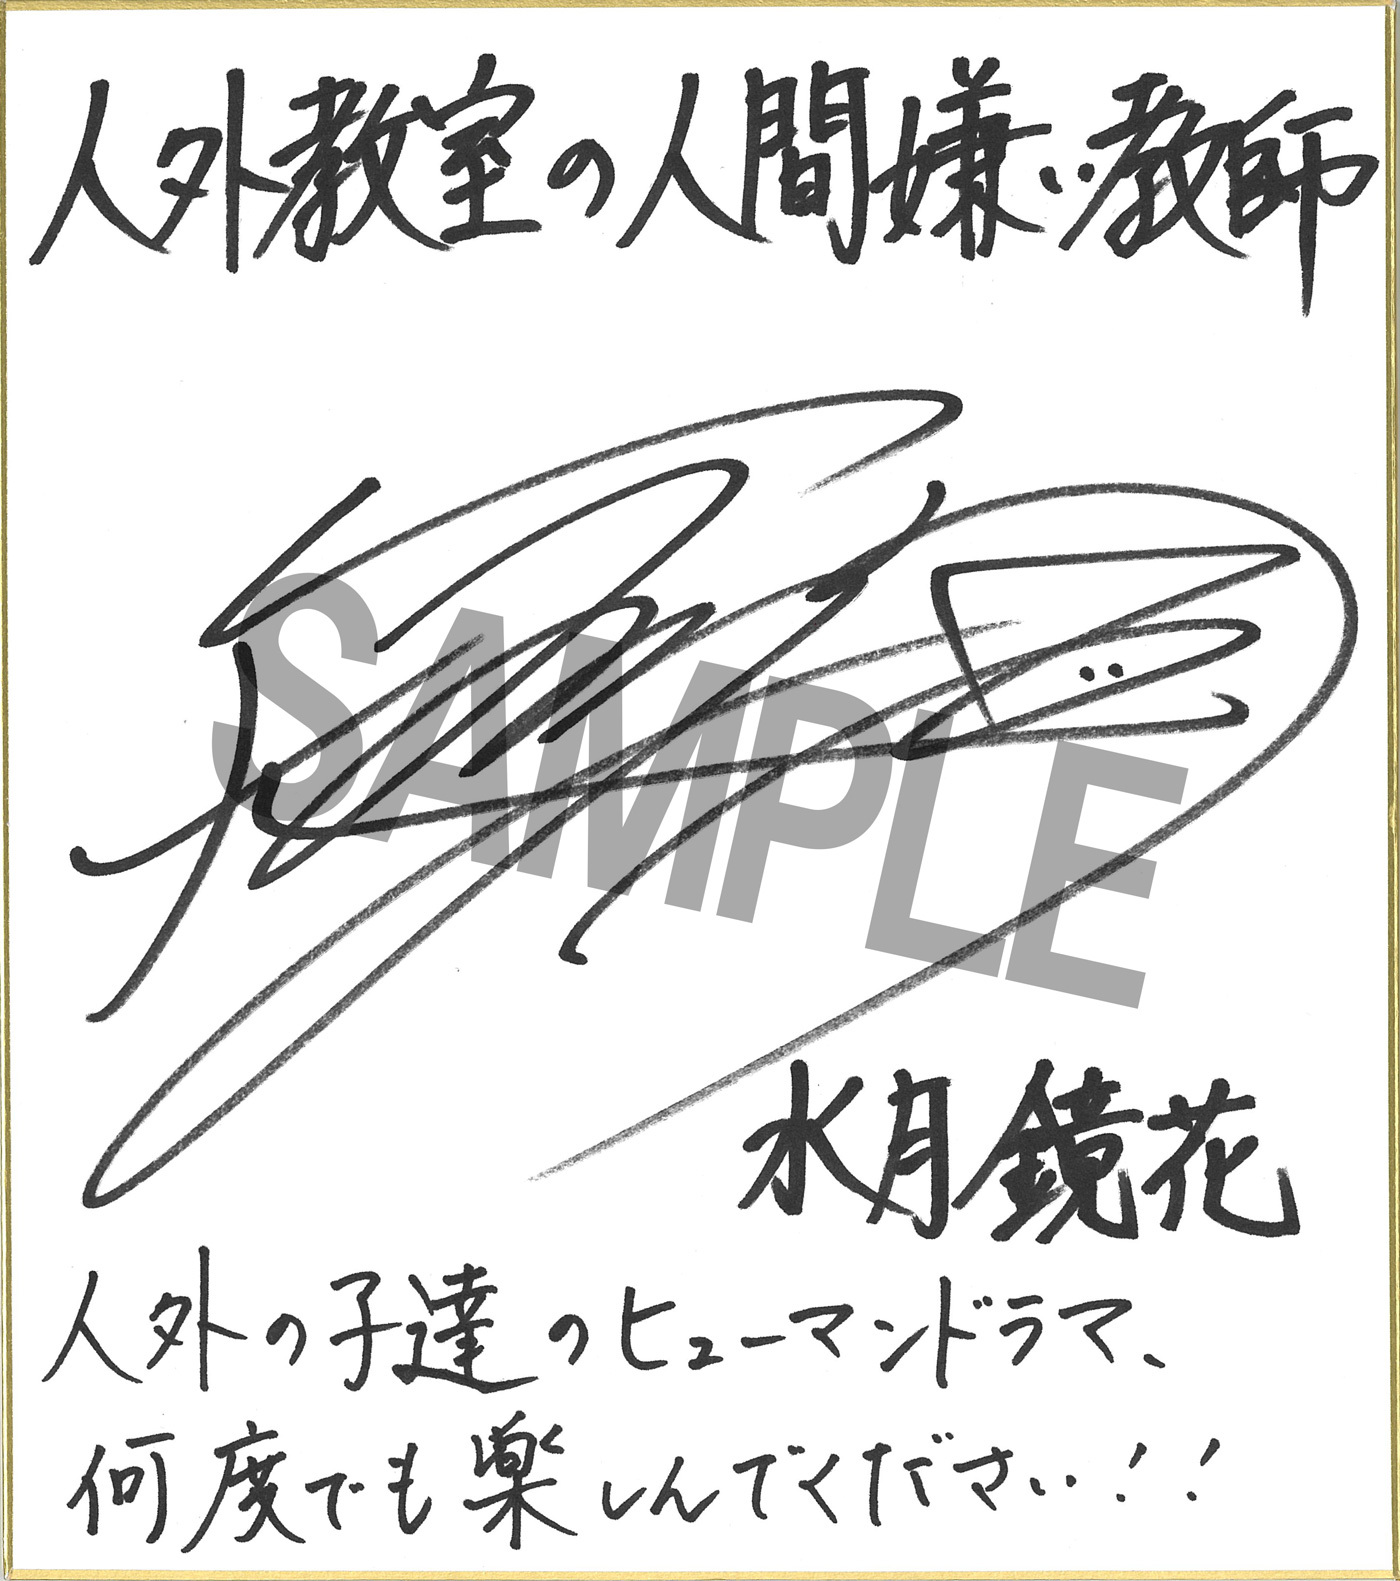 人外教室の人間嫌い教師
SAMPLE
水月鏡花
人外の子達のヒューマンドラマ、
何度でも楽しんでください！！